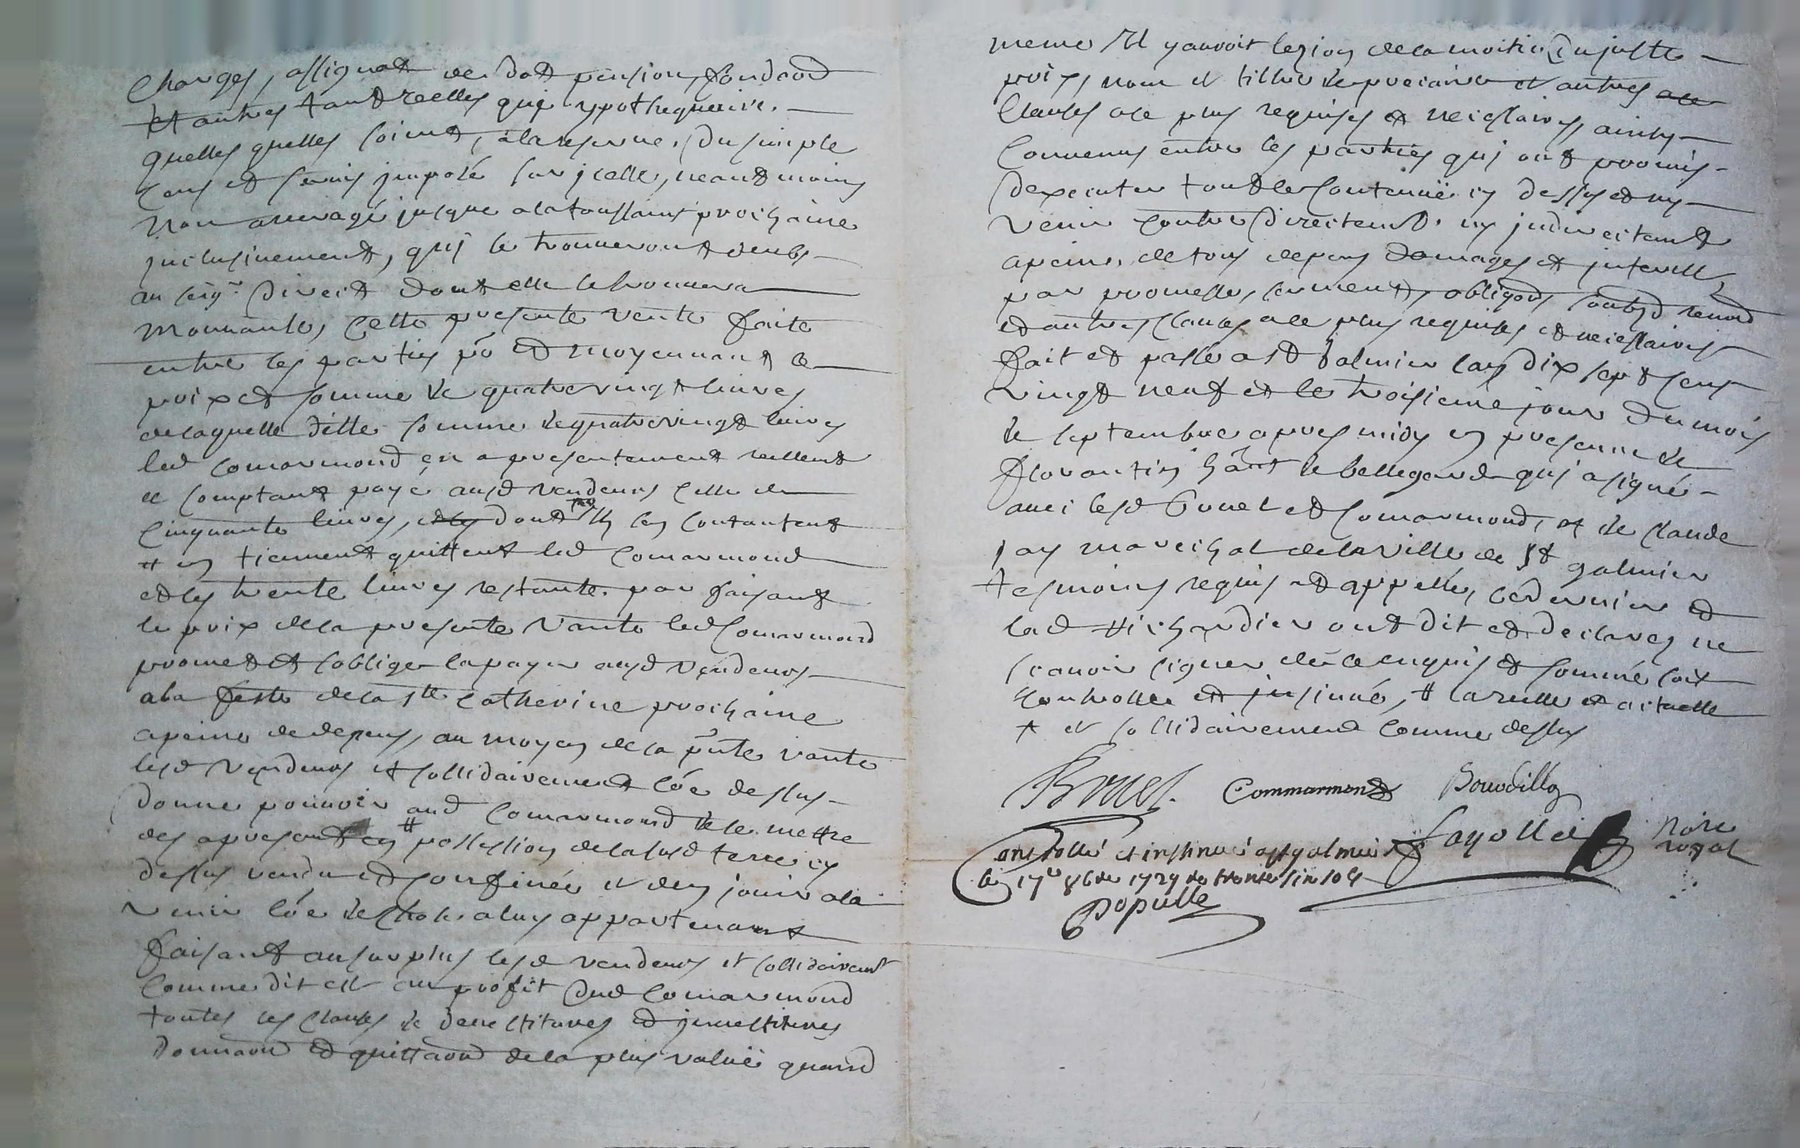 charges, assignat de dot pension, fondaōn
et autres tant reelles que ypothequaire.
quelles quelles soient, a la reserve, du simple
cens et servis imposé sur icelle, neantmoins
non arreragé jusque a la toussains prochaine
inclusivement, qui se trouveront deubs
au seigr. direct dont elle se trouvera
mouvante, cette presente vente faite
entre les parties pō et moyennant le
prix et somme de quatre vingt livres
de laquelle ditte somme de quatre vingt livres
led comarmond en a presentement reellemt
et comptant payé ausd vendeurs celle de
cinquante livres, dont ils sen contantent
et en tiennent quittent led comarmond
et les trente livres restante. par faisant
le prix de la presente vante led Comarmond
promet et soblige la payer ausd vendeurs
a la feste de la ste catherine prochaine
a peine de depens, au moyen de la pñte vante
lesd vendeurs et sollidairement cōe dessus
donne pouvoir aud Comarmond de se mettre
des apresent en # possession de la susd terre cy
dessus vendue et confinée et den jouir a la
venir cōe de chose a luy appartenant
faisant au surplus lesd vendeurs et sollidairemt
comme dit est au profit dud Comarmond
toutes les clauses de devestitures et investitures
donnaōn et quittaōn de la plus valüe quand
meme il y auroit lezion de la moitié du juste
prix, nom et tiltre de precaire et autres
clauses a ce plus requises et necessaires, ainsy
convenus entre les parties qui ont promis
dexecuter tout le contenüe cy dessus et ny
venir contre directemt. ny indirectemt
a peine de tous depens domages et interest,
par promesse, serment, obligaōn, soubs renonc
et autres clauses a ce plus requises et necessaires
fait et passé a st galmier lan dix sept cens
vingt neuf et le troisieme jour du mois
de septembre apres midy en presence de
florantin hant de bellegarde qui a signé
avec lesd Bruel et Comarmond, et de claude
jay marechal de la ville de st galmier
tesmoins requis et appellés, ce dernier et
lad ont dit et declarez ne
scavoir signer de ce enquis et sommé soit
controllé et insinué, # la reelle et actuelle
+ et sollidairement comme dessus
Bruel. Commarmond Bourdillo
fayolle Nore royal
Controllé et insinué a st galmier
le 17e 7bre 1729 re trente six sols
Populle